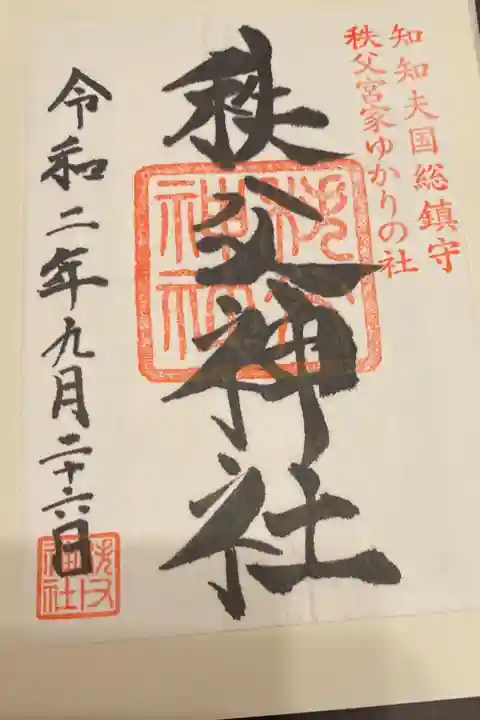 知知夫国総鎮守
秩父宮家ゆかりの社
秩父神社
秩父
神社
令和二年九月二十六日
秩父
神社